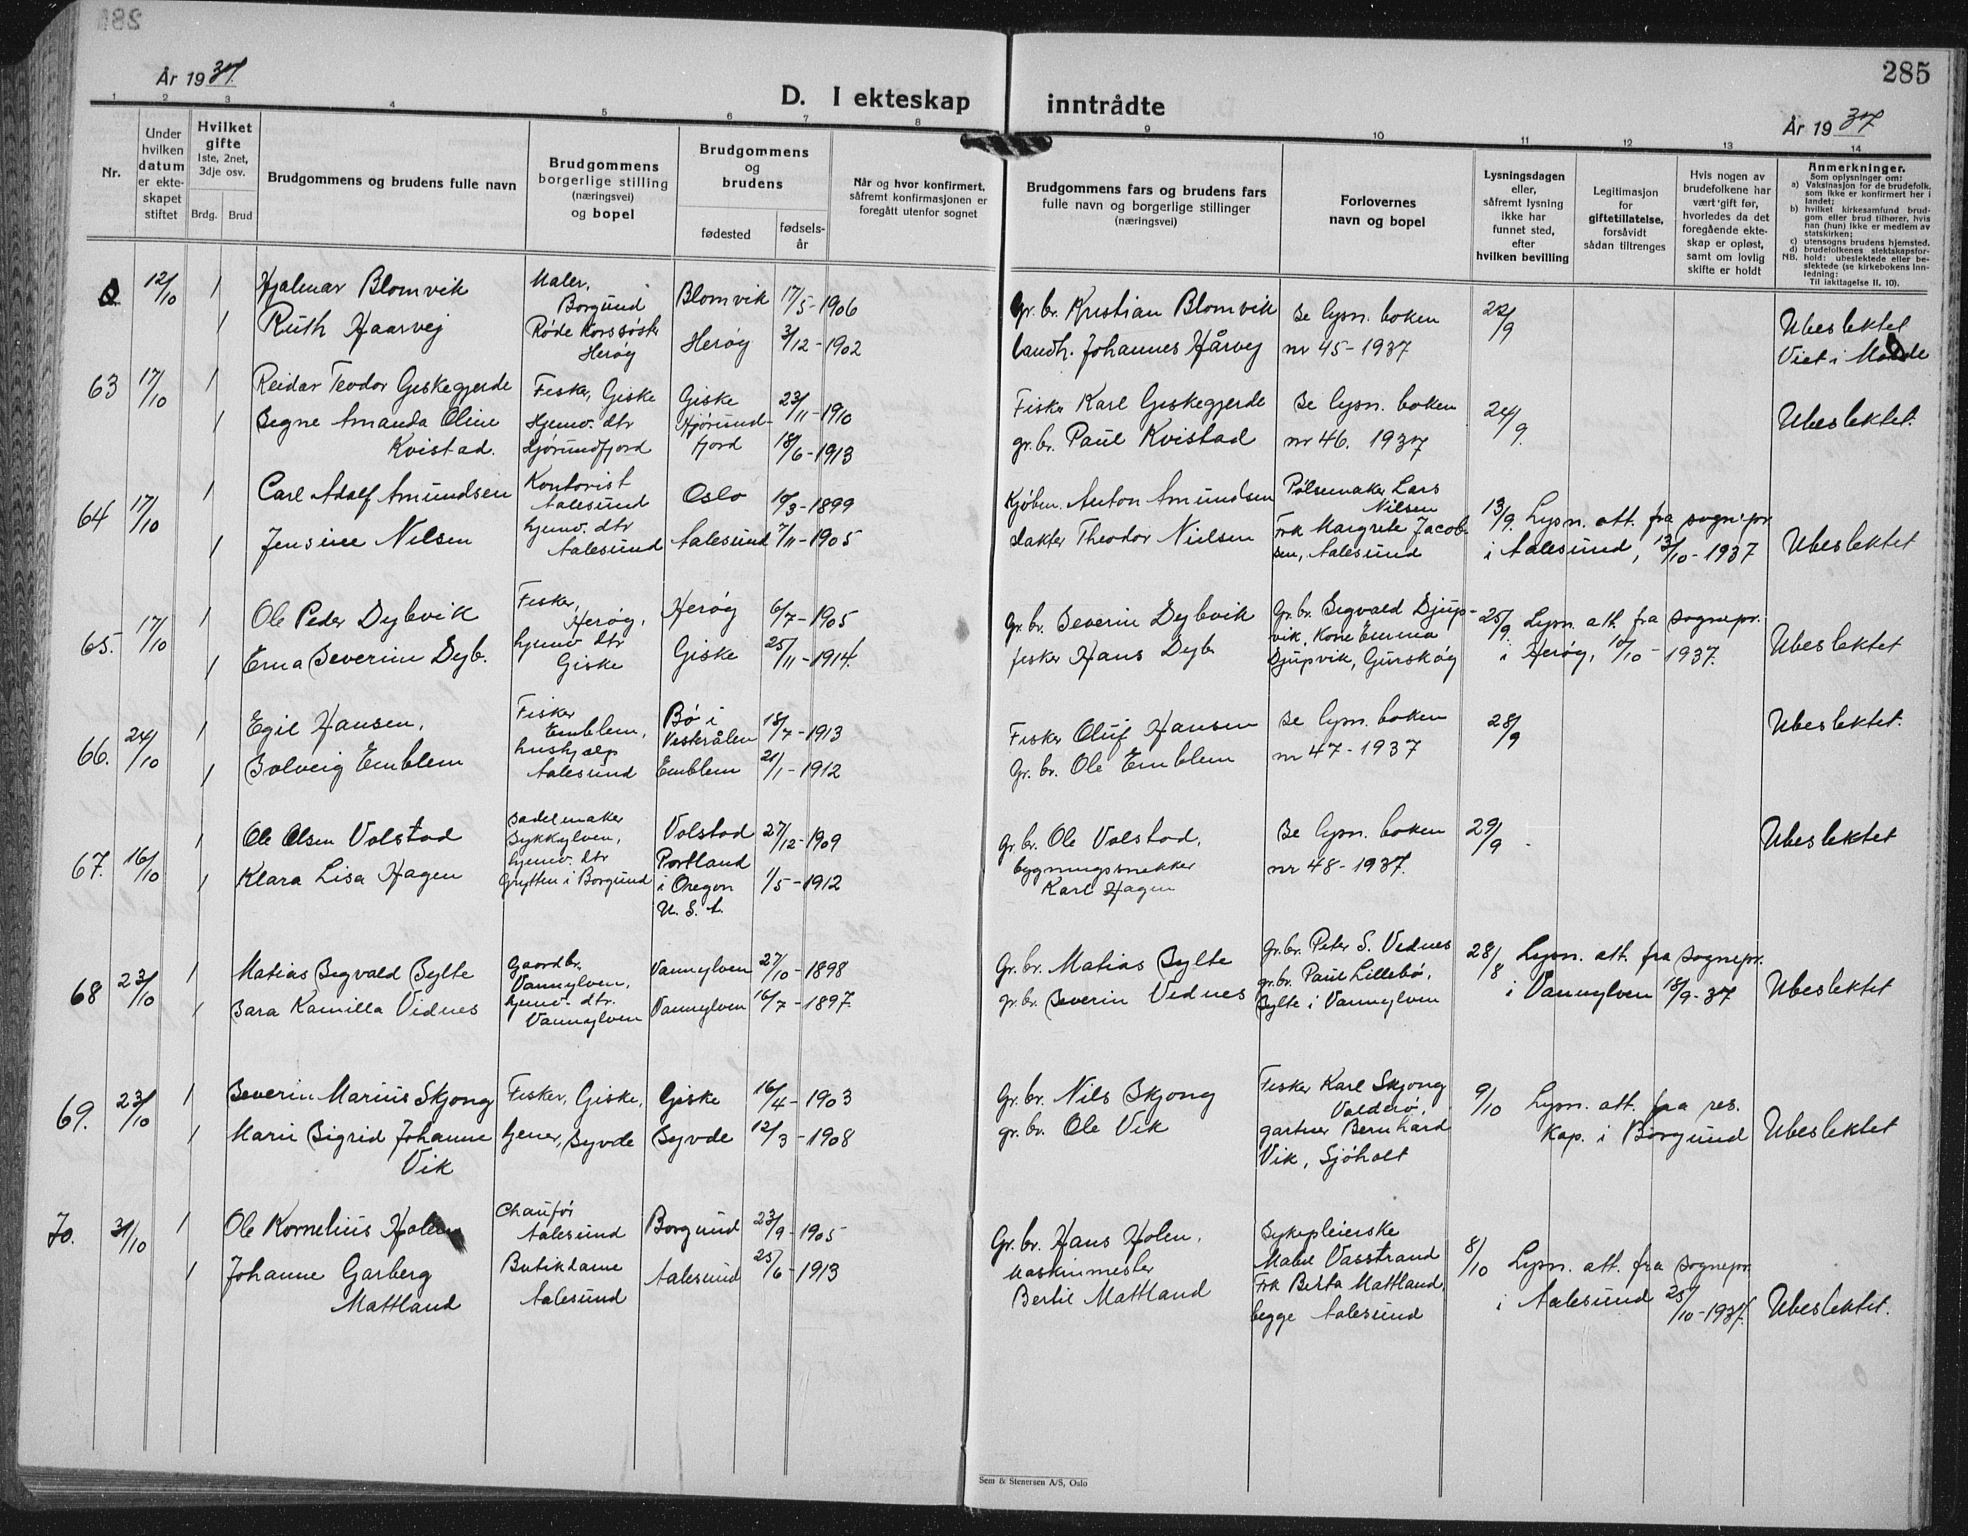 285
År 1937.
D. I ekteskap inntrådte
År 1937
1 2 3 4 5 6 7 8 9 10 11 12 13 14
Nr.
Under hvilken datum er ekteskapet stiftet
Hvilket gifte
1ste, 2net, 3dje osv.
Brdg. Brud
Brudgommens og brudens fulle navn
Brudgommens borgerlige stilling (næringsvei) og bopel
Brudgommens og brudens
fødested
fødselsår
Når og hvor konfirmert, såfremt konfirmasjonen er foregått utenfor sognet
Brudgommens fars og brudens fars fulle navn og borgerlige stillinger (næringsvei)
Forlovernes navn og bopel
Lysningsdagen eller, såfremt lysning ikke har funnet sted, efter hvilken bevilling
Legitimasjon for giftetillatelse, forsåvidt sådan tiltrenges
Hvis nogen av brudefolkene har vært gift før, hvorledes da det foregående ekteskap er opløst, samt om lovlig skifte er holdt
Anmerkninger.
Som oplysninger om:
a) Vaksinasjon for de brudefolk, som ikke er konfirmert her i landet;
b) hvilket kirkesamfund brudgom eller brud tilhører, hvis han (hun) ikke er medlem av statskirken;
c) utensogns brudens hjemsted.
d) brudefolkenes slektskapsforhold: ubeslektede eller beslektede (se kirkebokens Innledning:
NB.
Til iakttagelse II. 10).
12/10 1 Hjalmar Blomvik Maler, Borgund Blomvik 17/5-1906 Gr. br. Kristian Blomvik Se lysn. boken 22/9 Ubeslektet
1 Ruth Haarvej Røde Korssøster Herøy Herøy 3/12-1902 landh. Johannes Hårvej nr 45-1937 Viet i Molde
63 17/10 1 Reidar Teodor Giskegjerde Fisker, Giske Giske 23/11-1910 Fisker Karl Giskegjerde Se lysn. boken 24/9. Ubeslektet.
1 Signe Amanda Oline Kvistad. Hjemv. dtr Hjørundfjord Hjørundfjord 18/6-1913 gr. br. Paul Kvistad nr 46. 1937
64 17/10 1 Carl Adolf Amundsen Kontorist Aalesund Oslo 10/3-1899 Kjøbm. Anton Amundsen Pølsemaker Lars Nilsen 13/9. Lysn. att. fra sognepr.
1 Jensine Nilsen hjemv. dtr Aalesund Aalesund 7/11-1905 slakter Theodor Nielsen Frk Margrete Jacobsen, Aalesund i Aalesund, 13/10-1937 Ubeslektet
65. 17/10 1 Ole Peder Dybvik Fisker, Herøy, Herøy 6/7-1905 gr. br. Severin Dybvik Gr. br. Sigvald Djupvik, Kone Emma 25/9. Lysn. att. fra sognepr.
1 Erna Severine Dyb. hjemv dtr Giske Giske 25/11-1914. fisker Hans Dyb Djupvik, Gurskøy i Herøy, 10/10-1937. Ubeslektet
66. 24/10 1 Egil Hansen, Fisker Emblem, Bø i Vesterålen 18/7-1913 Fisker Oluf Hansen Se lysn. boken 28/9 Ubeslektet.
1 Solveig Emblem hushjelp Aalesund Emblem 21/1-1912 Gr. br. Ole Emblem nr 47-1937
67. 16/10 1 Ole Olsen Volstad Sadelmaker Sykkylven, Volstad 27/12-1909 gr. br. Ole Volstad, Se lysn. boken 29/9 Ubeslektet
1 Klara Lisa Hagen hjemv. dtr Grytten i Borgund Portland i Oregon U. S. A. 1/5-1912 bygningssnekker Karl Hagen nr 48-1937.
68 23/10 1 Matias Sigvald Sylte Gaardbr. Vannylven, Vannylven 27/10-1898 Gr. br. Matias Sylte Gr. br. Peter S. Vednes 28/8 Lysn. att. fra sognepr.
1 Sara Kamilla Vidnes hjemv. dtr. Vannylven Vannylven 16/7-1897. gr. br Severin Vednes gr. br. Paul Lillebø, Sylte i Vannylven i Vannylven 18/9-37 Ubeslektet
69. 23/10 1 Severin Marius Skjong Fisker, Giske, Giske 16/4-1903 Gr. br. Nils Skjong Fisker Karl Skjong Valderø, 9/10 Lysn. att. fra res.
1 Marie Sigrid Johanne Vik Syvde Syvde 12/3-1908 gr. br. Ole Vik gartner Bernhard Vik, Sjøholt Kap. i Borgund Ubeslektet
70. 31/10 1 Ole Kornelius Holen Chaufør Aalesund Borgund 23/9-1905 Gr. br. Hans Holen, Sykepleierske Mabel Vasstrand 8/10 Lysn. att. fra sognepr.
1 Johanne Garberg Mattland Butikdame Aalesund Aalesund 25/6-1913 Maskinmester Bertil Mattland Frk Berta Mattland, begge Aalesund i Aalesund 25/10-1937. Ubeslektet.
Sem & Stenersen A/S, Oslo